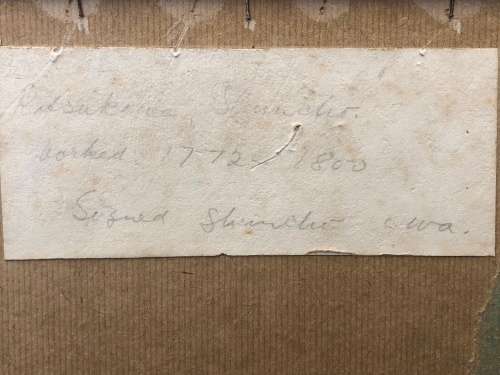 Katsukawa, Shuncho.
worked. 1772 - 1800
Signed Shuncho gwa.